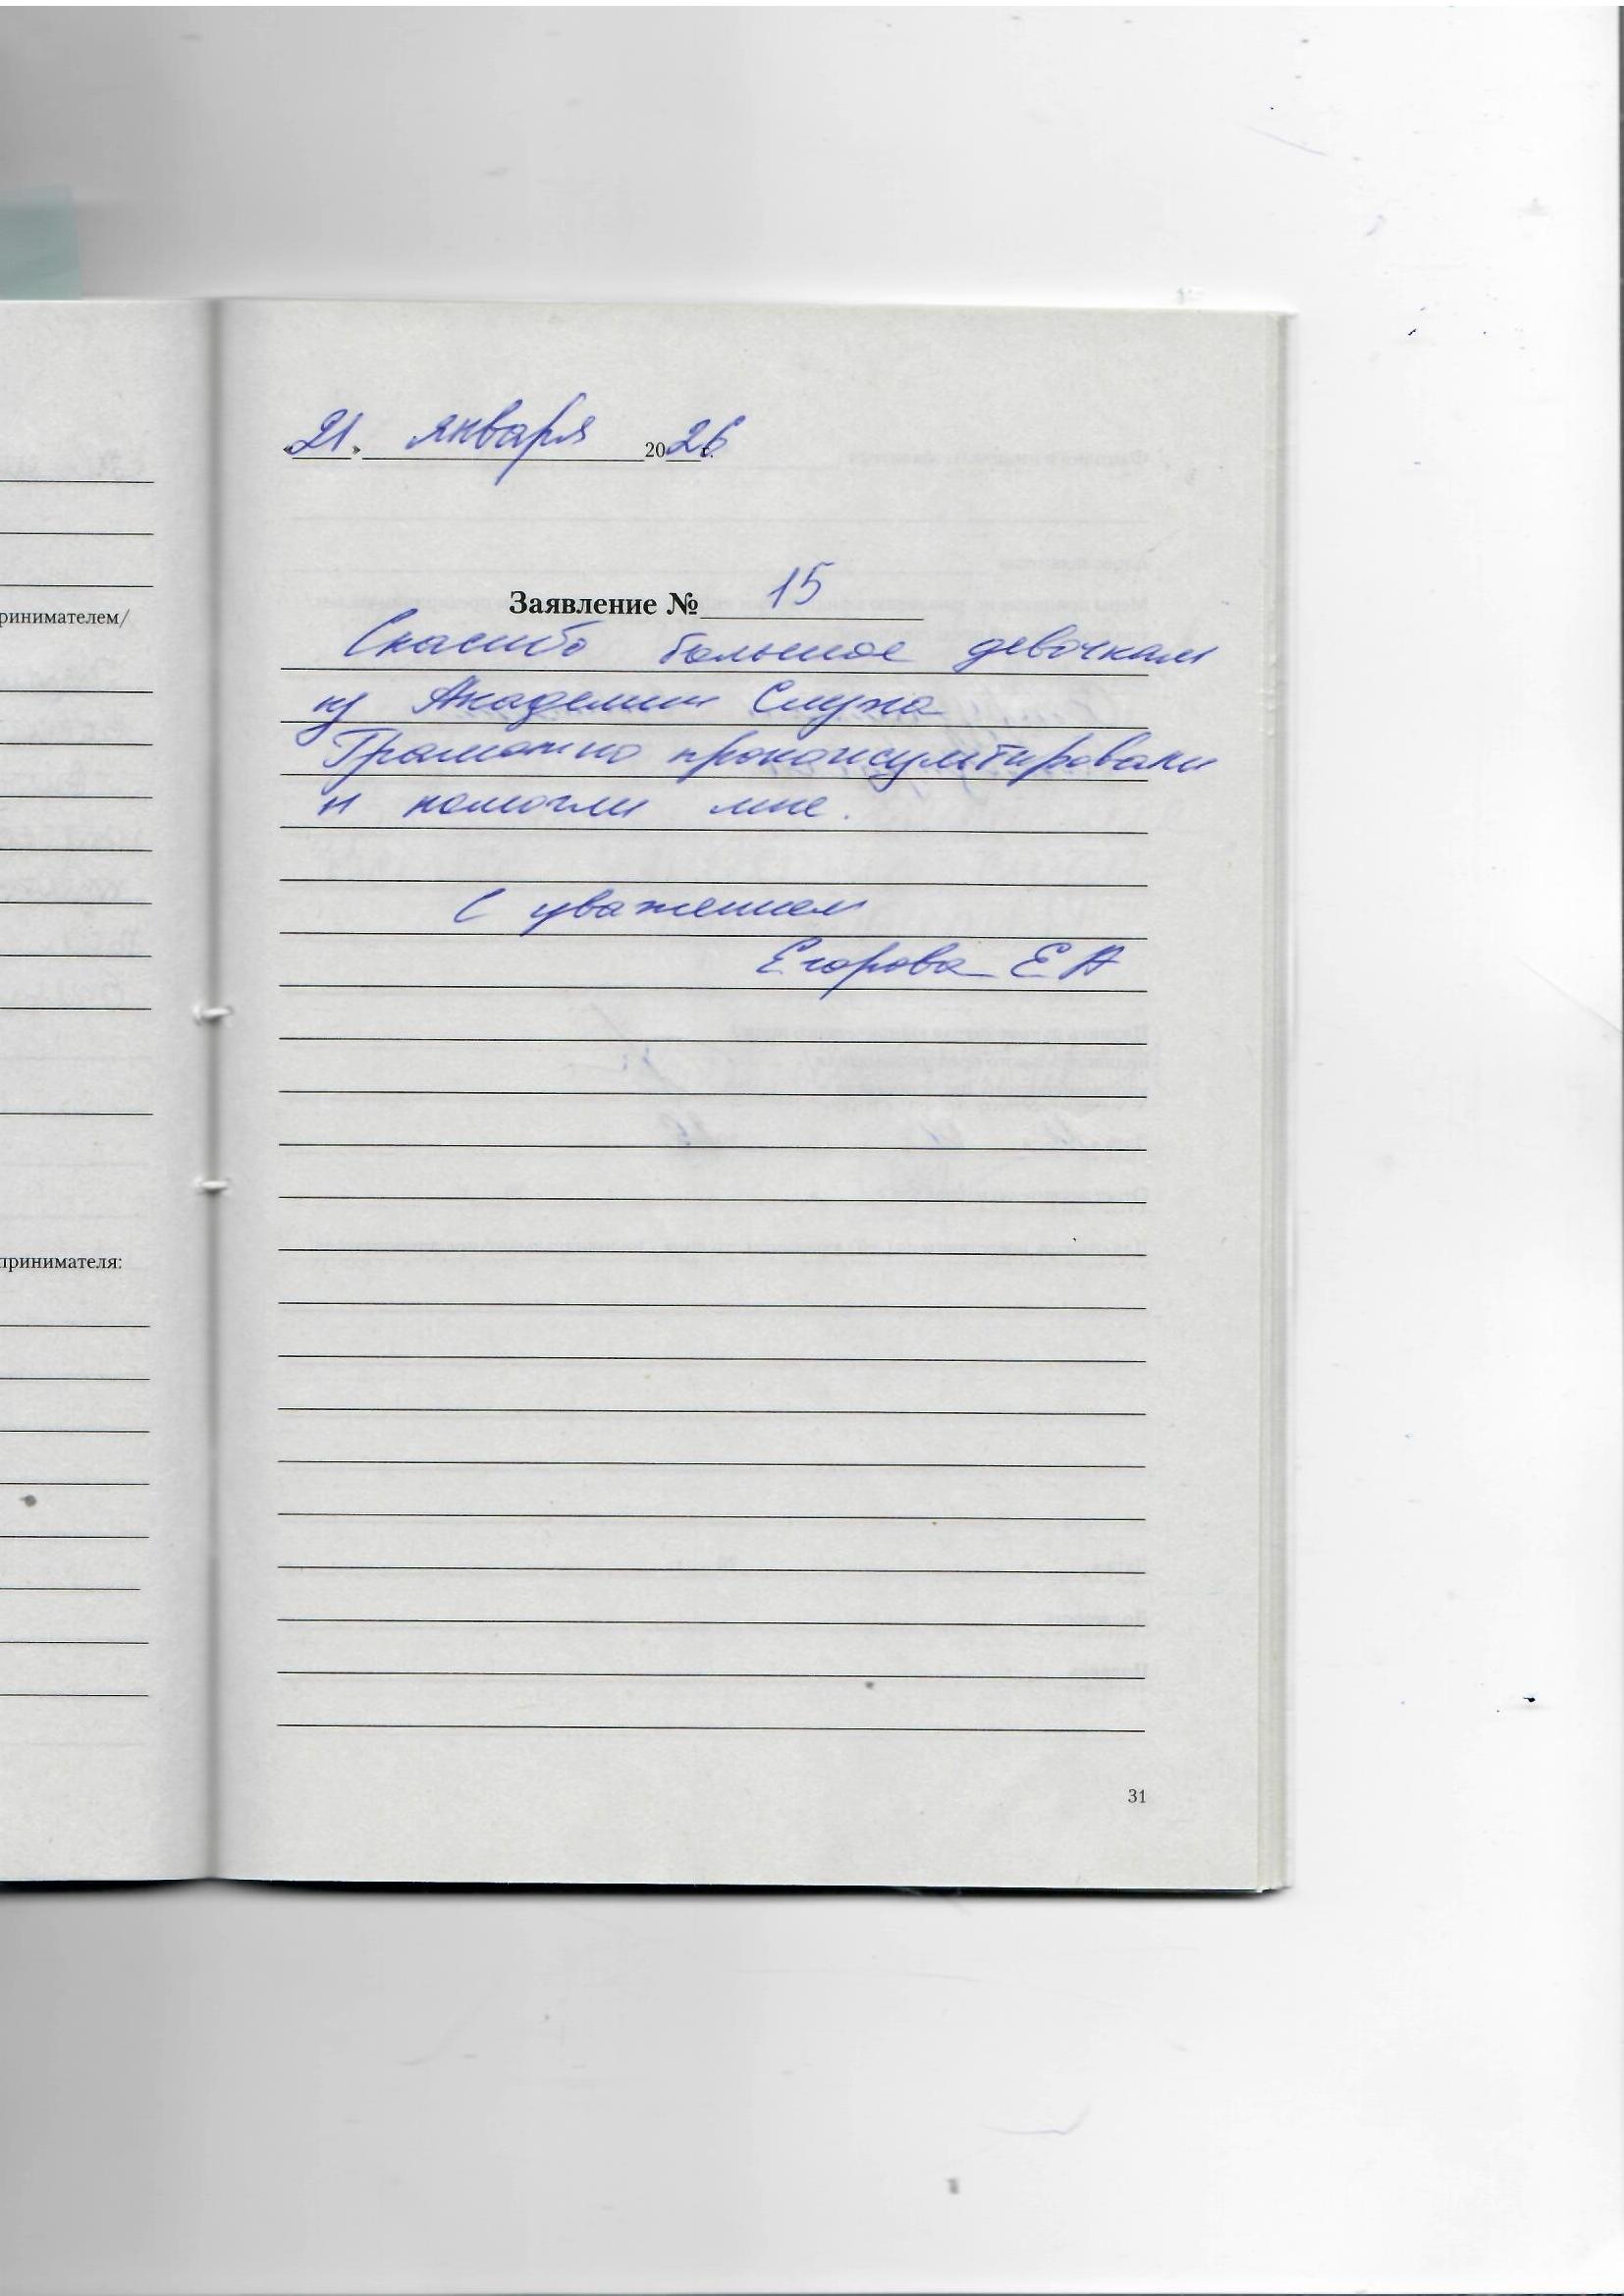 «21» января 2026 г.
Заявление № 15
ринимателем/
Спасибо большое девочкам
из Академии Слуха
Грамотно проконсультировали
и помогли мне.
С уважением
Егорова Е А
принимателя:
31